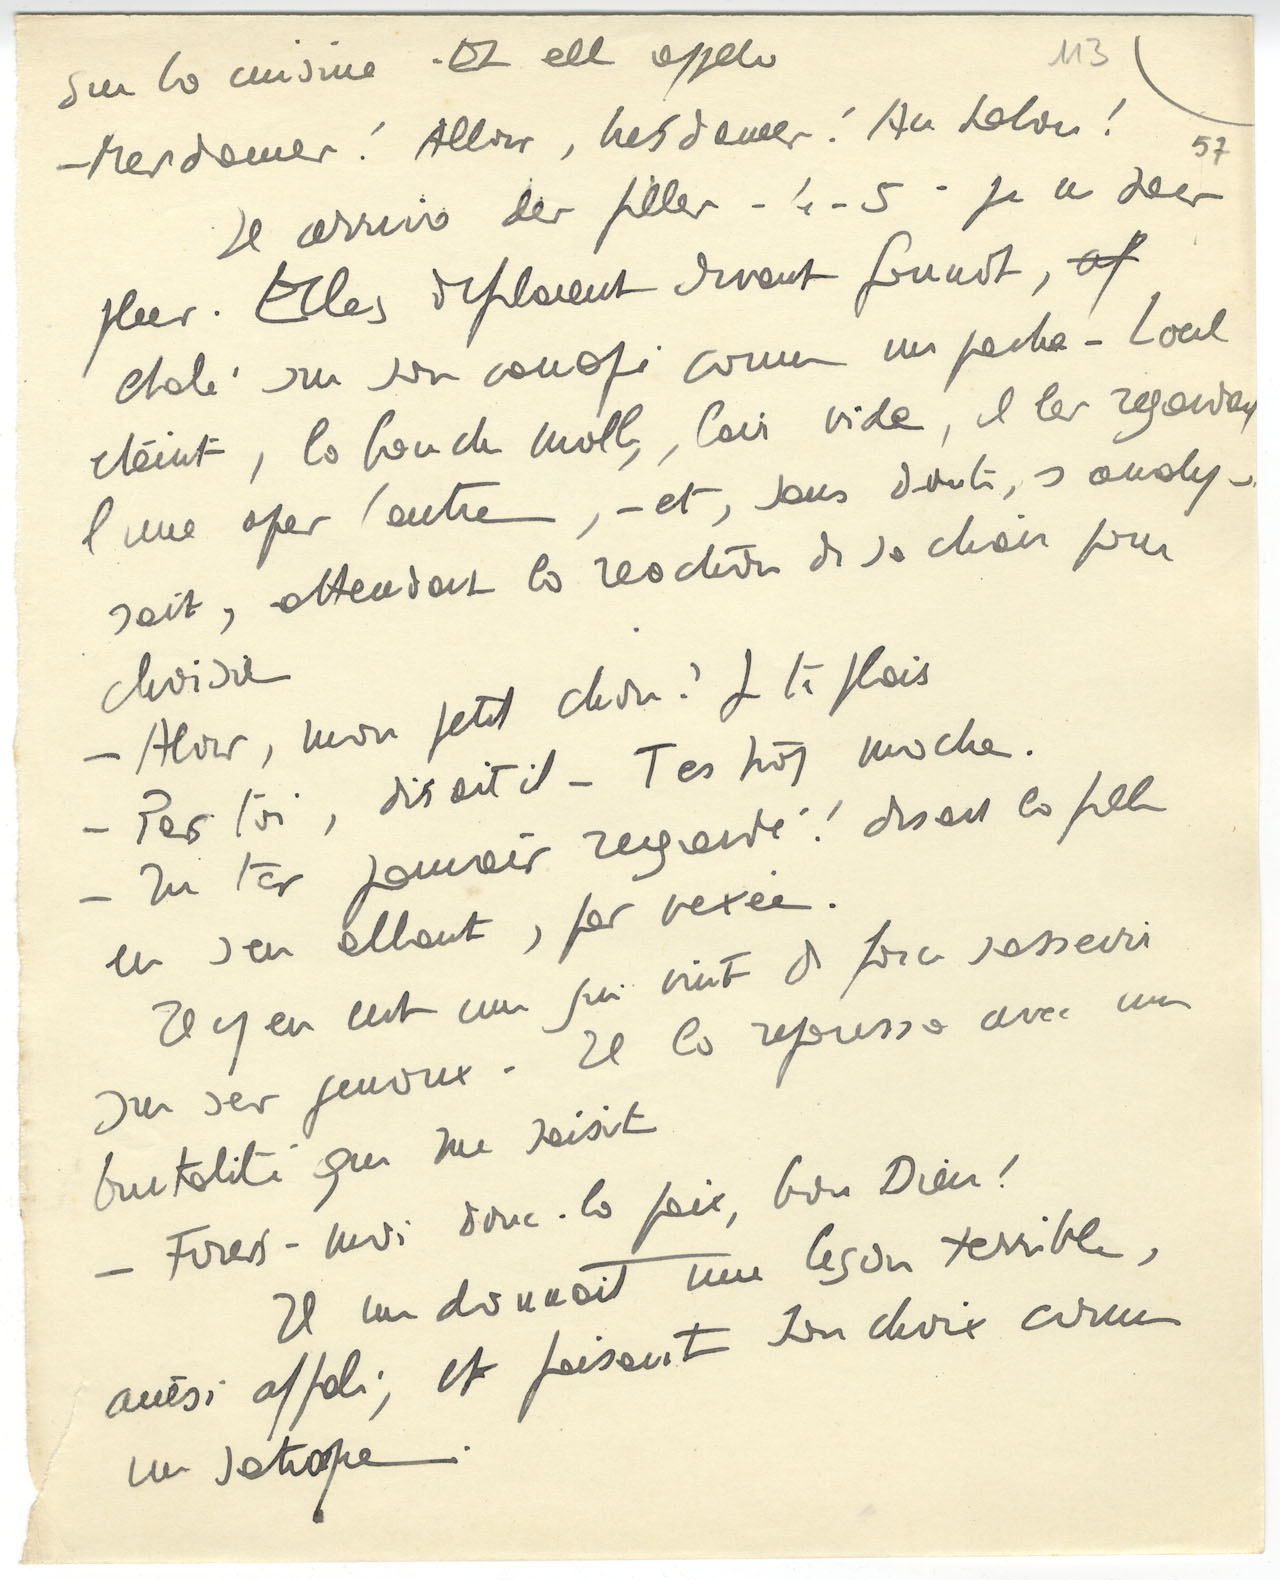 113
57
sur la cuisine - Et elle appela
- Mesdames! Allons, Mesdames! Au salon!
Il arriva des filles - 4 - 5 - je ne sais
plus. Elles défilaient devant
étalé sur son canapé comme un pacha - L'œil
éteint, la bouche molle, l'air vide, il les regardait
l'une après l'autre, - et, sans doute, s'analy-
sait, attendant la réaction de sa chair pour
choisir
- Alors, mon petit chou? Je te plais
- Pas toi, disait il - T'es trop moche.
- Tu t'es jamais regardé! disait la fille
en s'en allant, pas vexée.
Il y en eut une qui vint de force s'asseoir
sur ses genoux. Il la repoussa avec une
brutalité qui me saisit
- Foues-moi donc la paix, bon Dieu!
Il me donnait une leçon terrible,
ainsi affalé, et faisant son choix comme
un satrape.